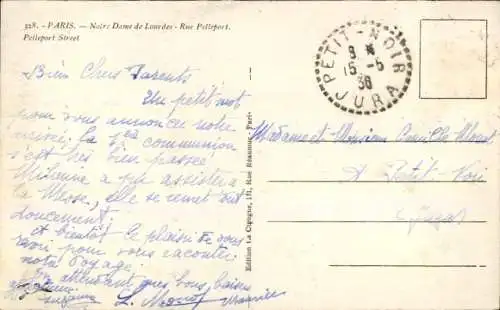 328. - PARIS. - Notre Dame de Lourdes - Rue Pelleport.
Pelleport Street
PETIT-NOIR
15 -5
36
JURA
Bien Chers Parents
Un petit mot
pour vous annoncer notre
arrivée, la 1ère communion
s'est très bien passée
a pu assister à
la Messe, elle se remet tout
doucement,
et bientôt le plaisir de vous
revoir pour vous raconter
notre voyage,
En attendant de vous, baisers
Suzanne L. Maurice
Edition La Cigogne, 111, Rue Réaumur - Paris
Madame et Monsieur Camille
A Petit-Noir
Jura